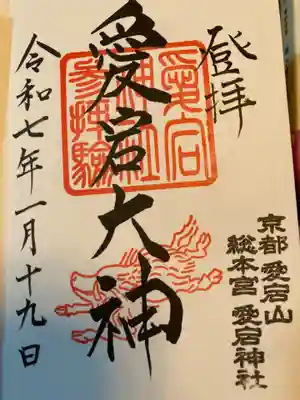 登拝
愛宕大神
令和七年一月十九日
京都愛宕山
総本宮愛宕神社
愛宕
神社
参拝験